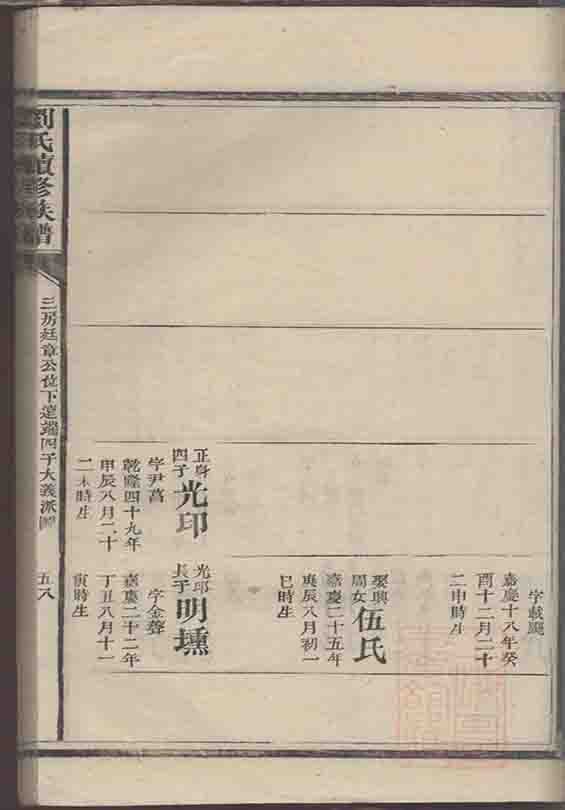 字載颺
嘉慶十八年癸
酉十二月二十
二申時生
娶興
周女伍氏
嘉慶二十五年
庚辰八月初一
巳時生
正身
四子光印
字尹菖
乾隆四十九年
甲辰八月二十
二未時生
光印
長子明壎
字金聲
嘉慶二十二年
丁丑八月十一
寅時生
劉氏續修族譜
三房廷章公位下蓮端四子大義派
五八